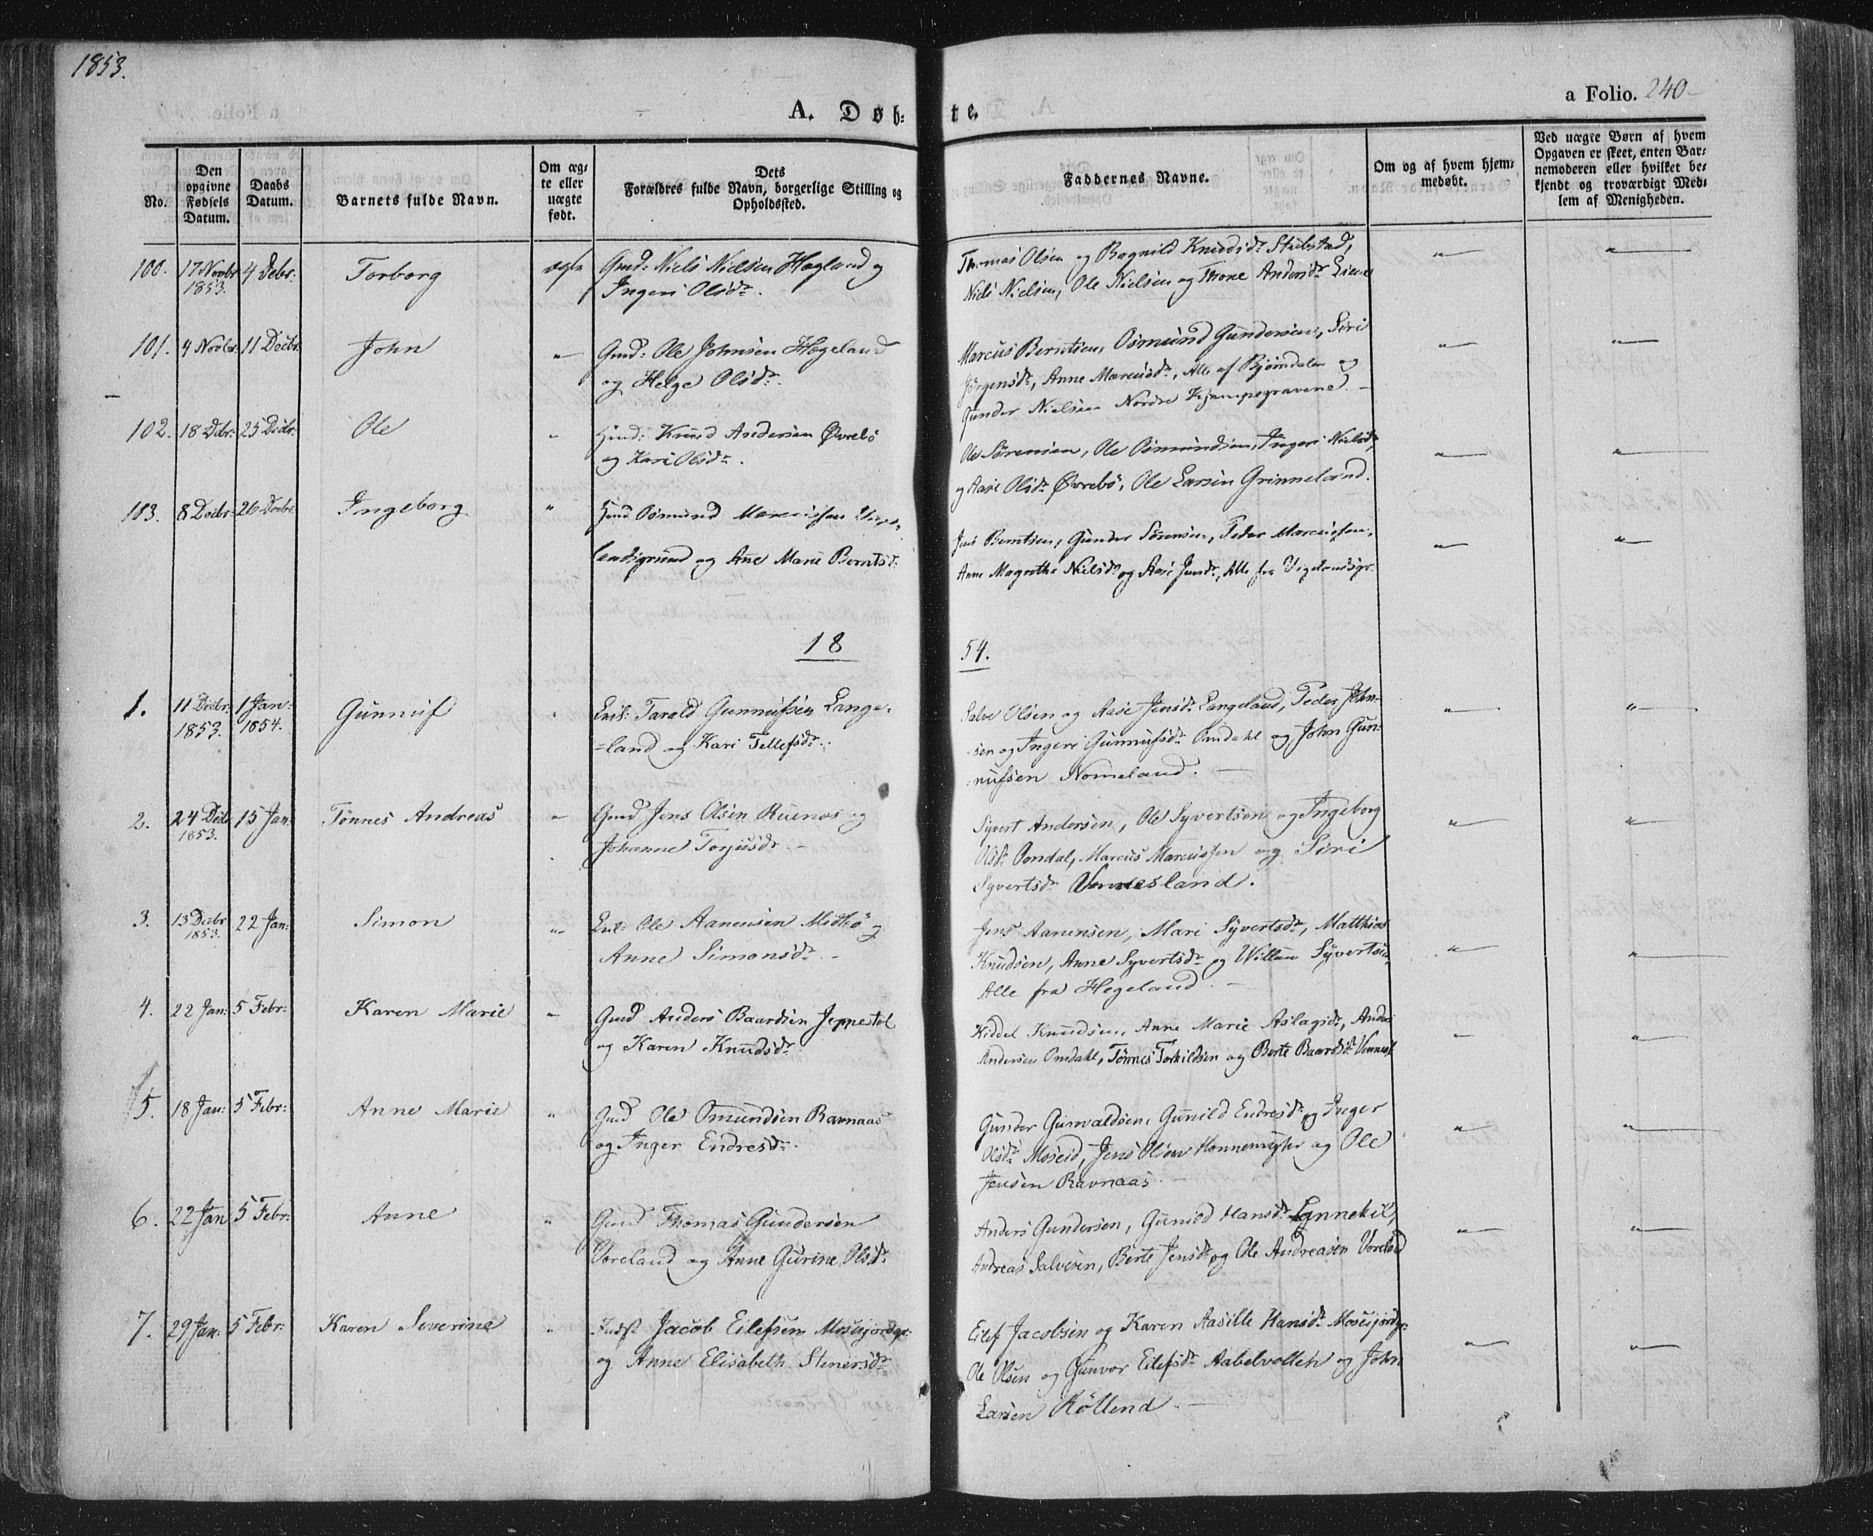 1853.
a Folio. 240
A. Døb- te.
No.
Den opgivne Fødsels Datum.
Daabs Datum.
Barnets fulde Navn.
Om ægte eller uægte født.
Dets Forældres fulde Navn, borgerlige Stilling og Opholdssted.
Faddernes Navne.
Om og af hvem hjemmedøbt.
Ved uægte Børn af hvem Opgaven er skeet, enten Barnemoderen eller hvilket bekjendt og troværdigt Medlem af Menigheden.
100. 17 Novbr 1853. 4 Debr: Torborg ægte Gmd: Niels Nielsen Hægland og
Ingeri Olsdr.
Thomas Olsen og Ragnild Knudsdr Stubstad,
Niels Nielsen, Ole Nielsen og Thone Andersdr
101. 4 Novbr. 11 Decbr. John " Gmd: Ole Johnsen Hægeland
og Helge Olsdr.
Marcus Berntsen, Osmund Gundersen, Siri
Jørgensdr, Anne Marcusdr, Alle af Bjørndalen og
Gunder Nielsen Nordre Kjempegravene.
102. 18 Debr: 25 Decbr. Ole " Hmd: Knud Andersen Øvrebø
og Kari Olsdr.
Ole Sørensen, Ole Osmundsen, Ingeri Nielsdr,
og Aase Olsdr Øvrebø, Ole Larsen Grinneland.
103. 8 Decbr: 26 Decbr Ingeborg " Hmd Osmund Marcussen
landsgrund og Ane Marie Berntsdr.
Jens Berntsen, Gunder Sørensen, Peder Marcussen,
Anne Magrethe Nielsdr og Aase Jensdr, Alle fra Vigelandsgr.
18
54.
1. 11 Decbr: 1853. 1 Jan: 1854. Gunnuf " Tarald Gunnufsen Lange-
=land og Kari Tellefsdr.
Salve Olsen og Aase Jensdr Langeland, Peder John-
sen og Ingeri Gunnufsdr Omdahl og John Gun-
nufsen Nomeland.
2. 24 Decbr 1853. 15 Jan: Tønnes Andreas " Gmd Jens Olsen Ruenæs og
Johanne Torjusdr.
Syvert Andersen, Ole Syvertsen og Ingeborg
Olsdr Omdal, Marcus Marcussen og Siri
Syvertsdr Vennesland.
3. 13 Decbr 1853. 22 Jan: Simon " Ole Aanensen Midtbø og
Anne Simonsdr.
Jens Aanensen, Mari Syvertsdr, Matthias
Knudsen, Anne Syvertsdr og Syvertsen
Alle fra Hegeland.
4. 22 Jan: 5 Febr: Karen Marie " Gmd Anders Baardsen Jeppestøl
og Karen Knudsdr.
Kiddel Knudsen, Anne Marie Aslagsdr, Anders
Andersen Omdahl, Tønnes Torkildsen og Berte Baardsdr Vennesl.
5. 18 Jan: 5 Febr: Anne Marie " Gmd Ole Omundsen Ravnaas
og Inger Endresdr.
Gunder Gunvaldsen, Gunild Endresdr og Inger
Olsdr Moseid, Jens Olsen Honnemyhr og Ole
Jensen Ravnaas.
6. 22 Jan 5 Febr: Anne " Gmd Thomas Gundersen
Voreland og Anne Gurine Olsdr.
Anders Gundersen, Gunild Hansdr Lynnekil,
Andreas Salvesen, Berte Jensdr og Ole Andreasen Voreland
7. 29 Jan: 5 Febr: Karen Severine " Indst Jacob Eilefsen Moseijordgr.
og Anne Elisabeth Stenersdr
Eilef Jacobsen og Karen Aasille Hansdr Moseijordgr.
Ole Olsen og Gunvor Eilefsdr Aabelvolleh og John
Larsen Køllend.